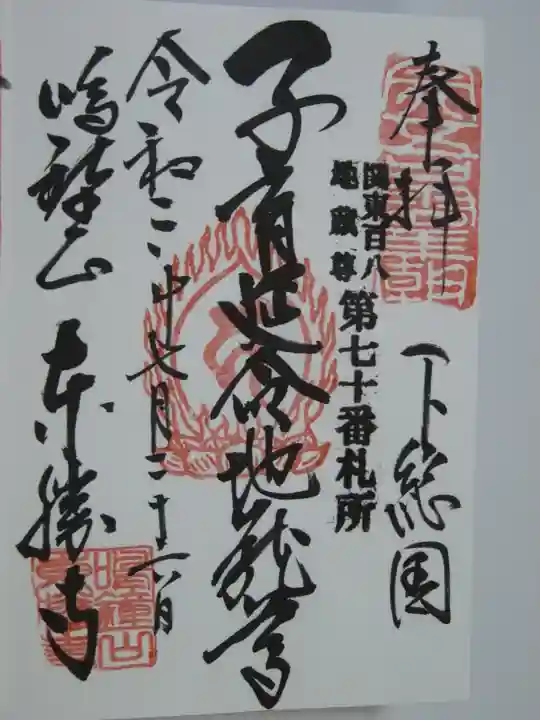 奉拝
下総国
関東百八
地蔵尊
第七十番札所
子育延命地蔵尊
令和二年七月二十六日
鳴鐘山 東勝寺
鳴鐘山
東勝寺